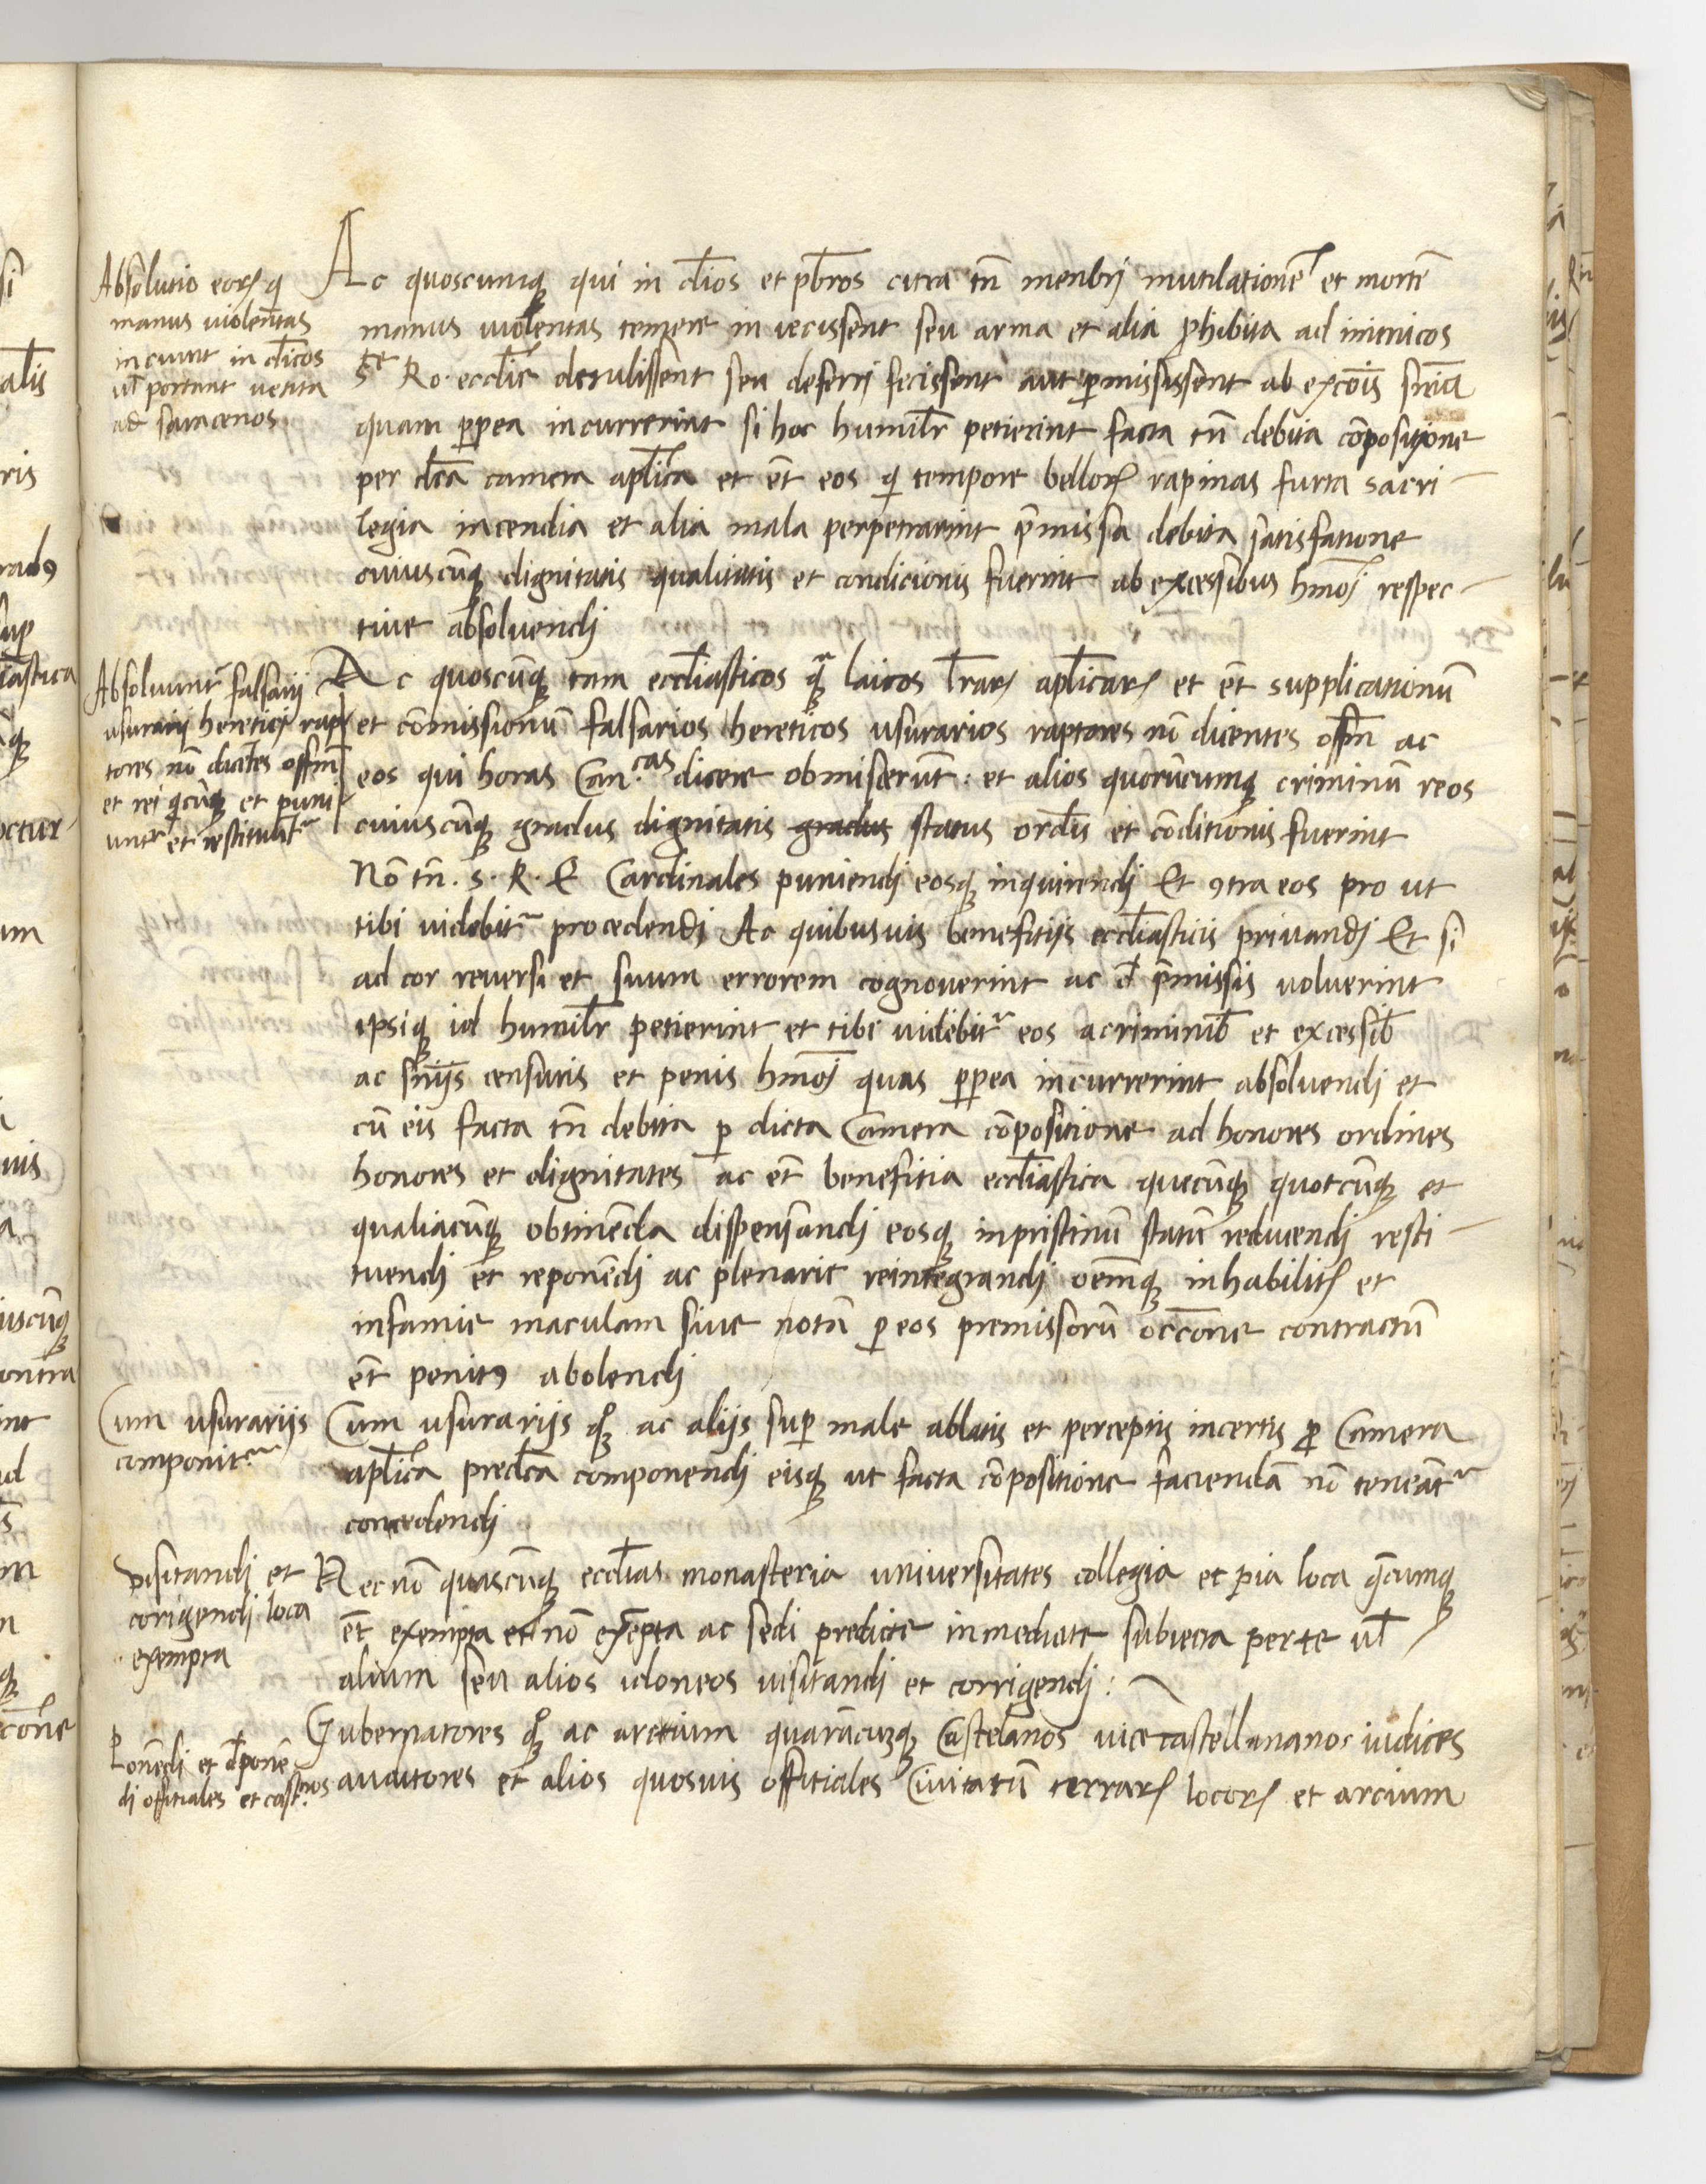 Absolutio eorꝝ q
manus uiolentas
inciunt in cl̄icos
ul̄ portant uetita
ad saracenos
Ac quoscumqꝫ qui in cl̄ios et pb̄ros citra tn̄ menbrj mutilationē et mortē
manus uiolentas temere in iecissent seu arma et alia ꝓhibita ad inimicos
Ste Ro. eccl̄ie detulissent seu deferrj fecissent aut ꝑmississent ab excōis sn̄ia
quam ꝓpea incurrerint si hoc humilr̄ petierint facta tn̄ debita cōpositione
per dc̄a camera apl̄ica et ēt eos q̄ tempore bellorꝝ rapinas furta sacri
legia incendia et alia mala perpetrarint p̄missa debita satisfatione
cuiuscūqꝫ dignitatis qualitatis et condicionis fuerint ab excessibus hmōj respec
tiue absoluendj
Absoluunt̄ falsarij
usurarij hereticj rap
tores nō dicētes offm̄
et rei q̄cūqꝫ et puni
untr et restituūtr
Ac quoscūqꝫ tam eccl̄iasticos qꝫ laicos lr̄arꝝ apl̄icarꝝ et ēt supplicationū
et cōmissionū falsarios hereticos usurarios raptores nō dicentes offm̄ ac
eos qui horas Can.cas dicere obmiserūt: et alios quorūcumqꝫ criminū reos
cuiuscūqꝫ gradus dignitatis gradus status ordīs et cōditionis fuerint
Nō tn̄. S. R. E Cardinales puniendj eosqꝫ inquirendj Et ꝯtra eos pro ut
tibi uidebitr procedendj Ac quibusuis benefitijs eccl̄iasticis priuandj Et si
ad cor reuersi et suum errorem cognouerint ac d̄ p̄missis uoluerint
ipsiqꝫ id humilr̄ petierint et tibi uidebitr eos a criminib̄ et excessib̄
ac sn̄ijs censuris et penis hmōj quas ꝓpea incurrerint absoluendj et
cū eis facta tn̄ debita ꝑ dicta Camera cōpositione ad honores ordines
honores et dignitates ac ēt benefitia eccl̄iastica quecūqꝫ quotcūqꝫ et
qualiacūqꝫ obtinēda dispensandj eosqꝫ in pristinū statū reducendj resti
tuendj et reponēdj ac plenarie reintegrandj oēmqꝫ inhabilitꝝ et
infamie maculam siue notā ꝑ eos premissorū occōne contractū
ēt penitꝰ abolendj
Cum usurariis
componitr
Cum usurariis qꝫ ac aliis suꝑ male ablatis et perceptis incertis ꝓ Camera
apl̄ica predc̄a componendj eisqꝫ ut facta cōpositione faciendā nō teneātr
concedendj
Visitandj et
corigendj loca
exempta
Nec nō quascūqꝫ eccl̄ias monasteria uniuersitates collegia et pia loca q̄cumqꝫ
ēt exempta et nō exēpta ac sedi predicte inmediate subiecta per te ul̄
alium seu alios idoneos uisitandj et corrigendj:
Ponēdi et dponē
di offitiales et castnos
Gubernatores qꝫ ac arctium quarūcuqꝫ Castelanos uicecastellananos iudices
auditores et alios quosuis offitiales Ciuitatū terrarꝝ locorꝝ et arcium